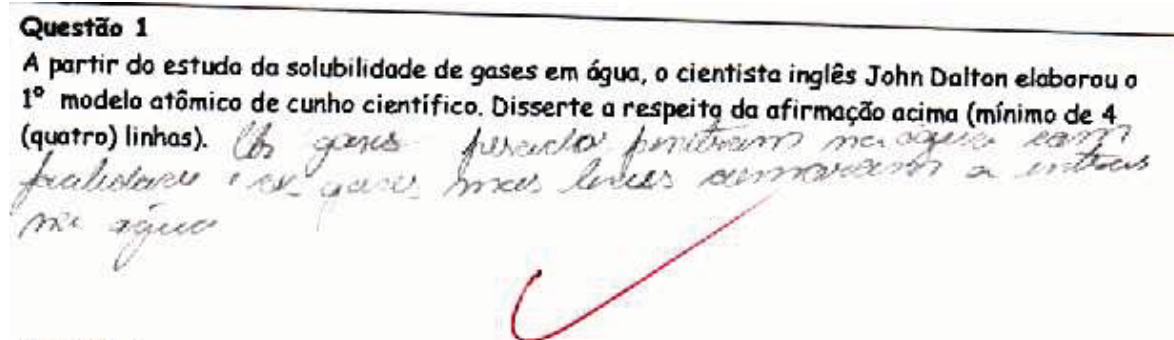 Questão 1
A partir do estudo da solubilidade de gases em água, o cientista inglês John Dalton elaborou o
1º modelo atômico de cunho científico. Disserte a respeito da afirmação acima (mínimo de 4
(quatro) linhas). Os gases pesados penetram na água com
facilidade e os gases mais leves demoraram a entrar
na água